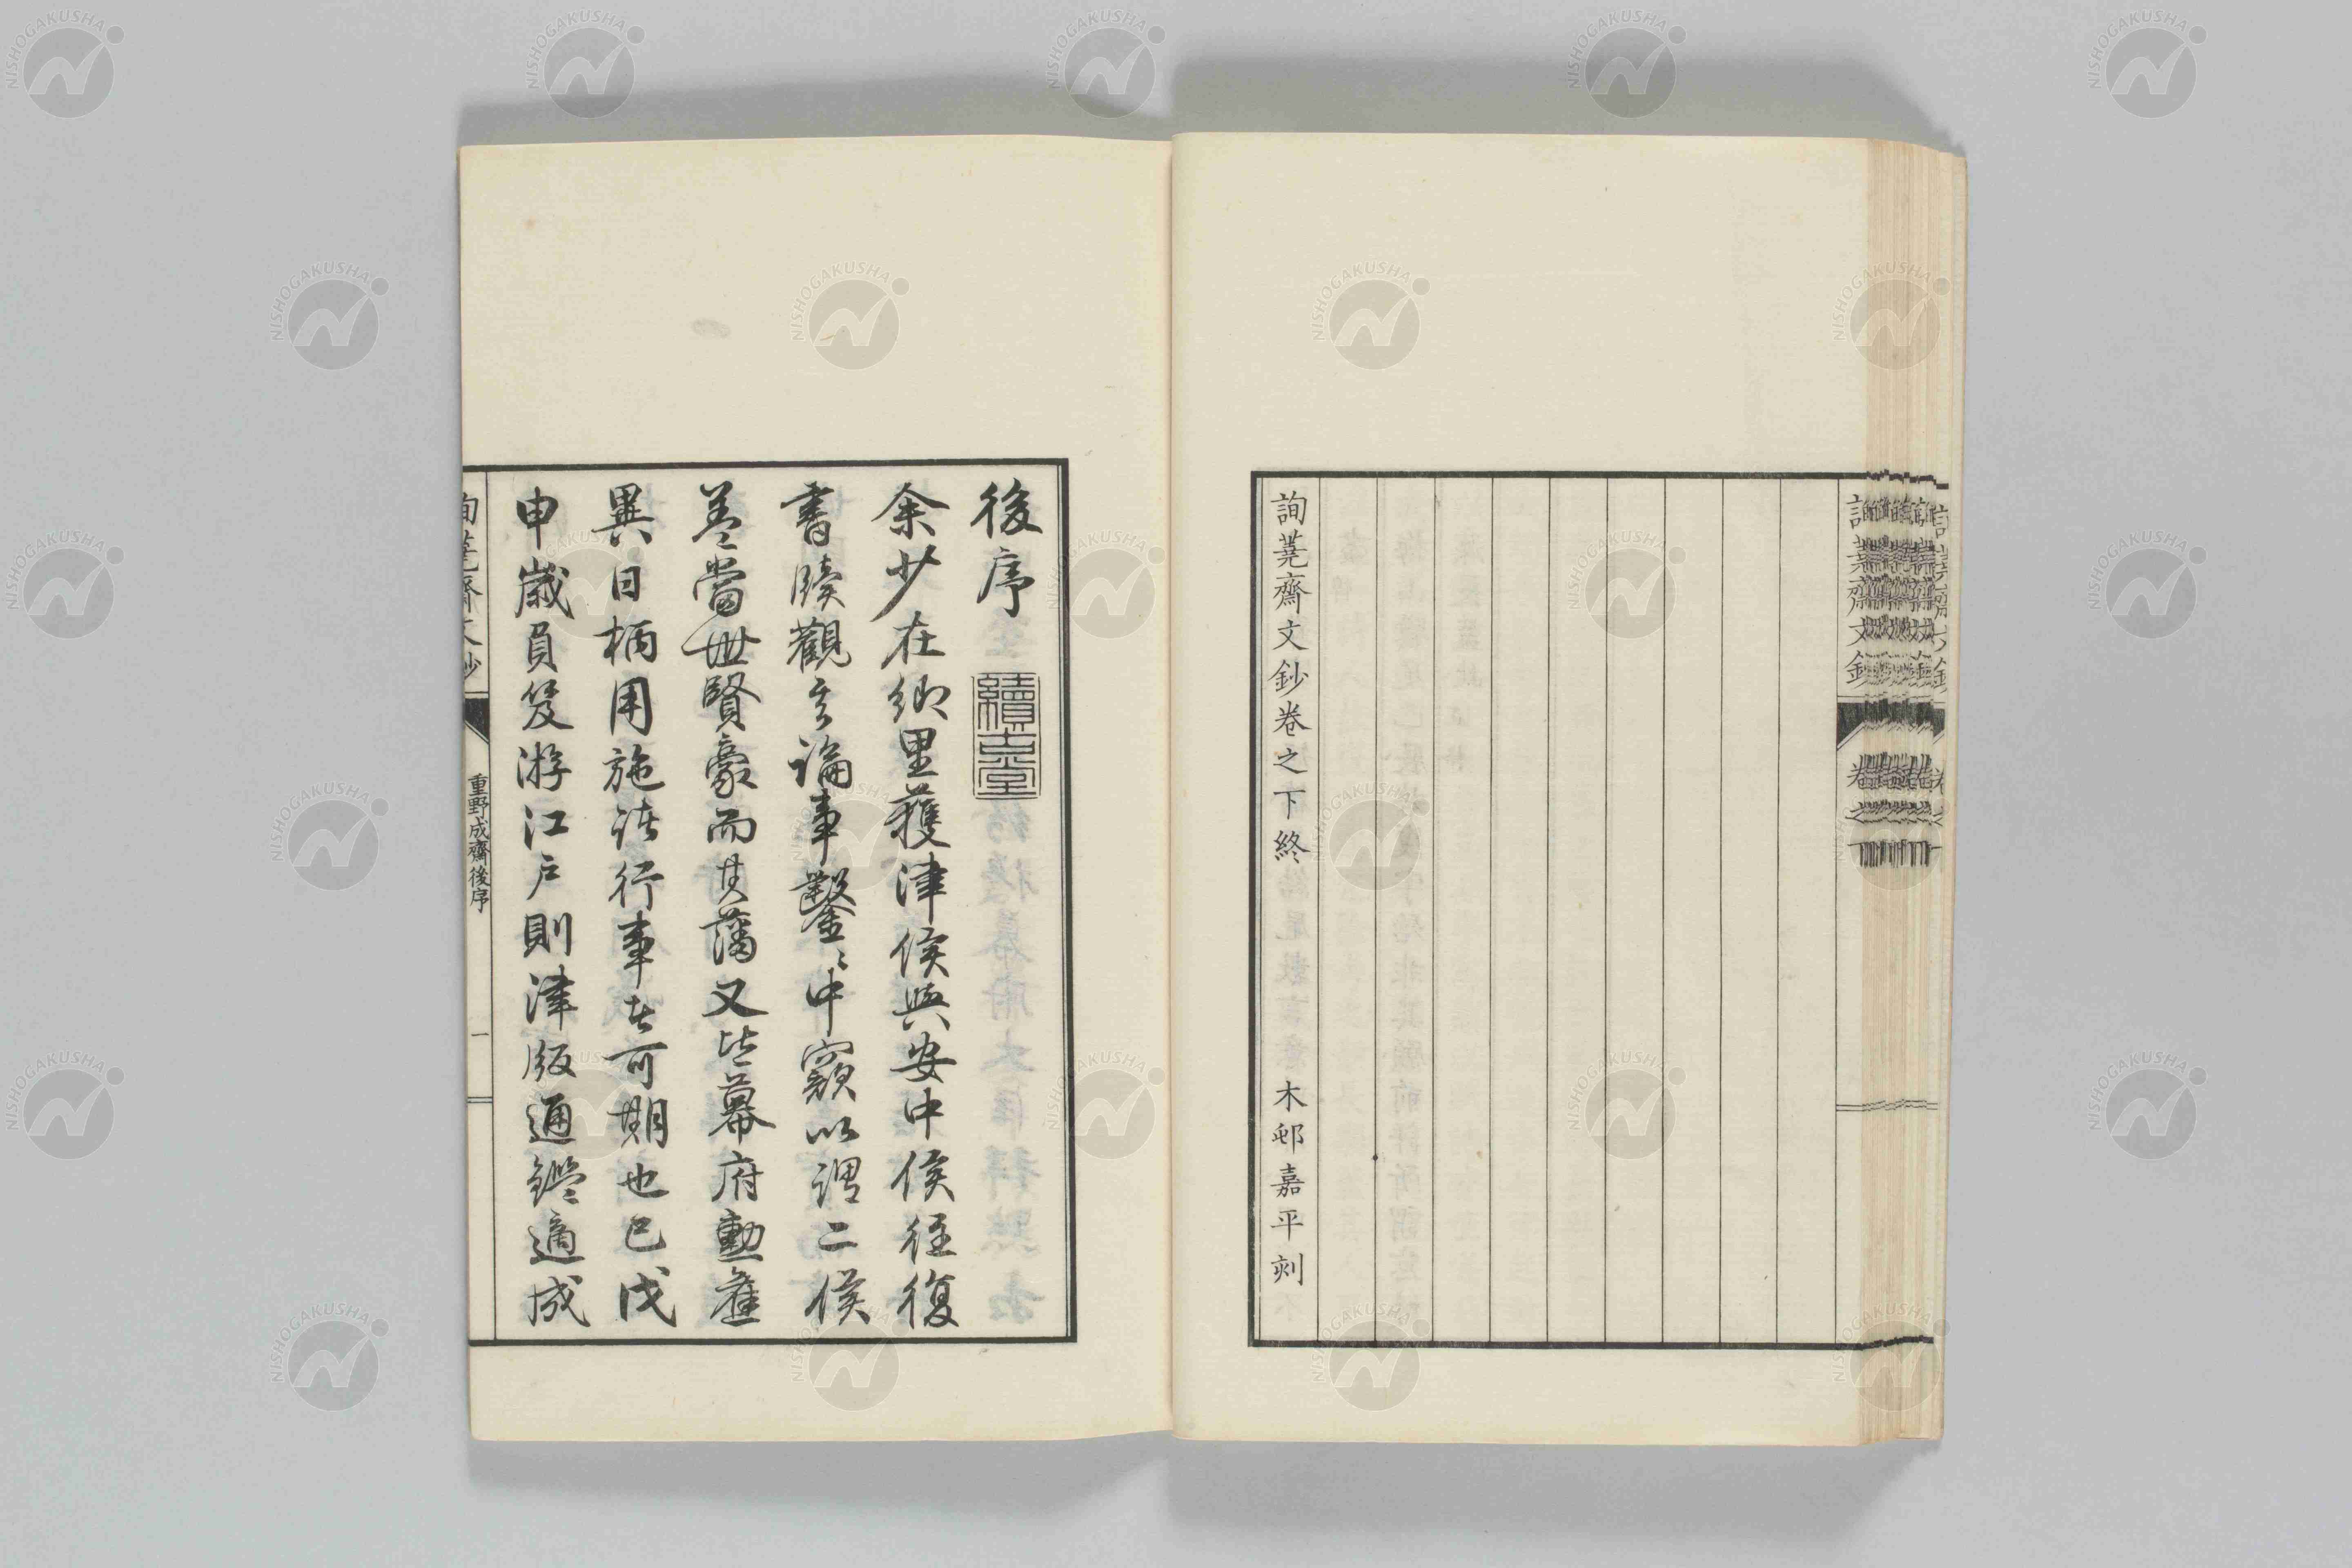 詢蕘齋文鈔卷之下終 木邨嘉平刻
詢蕘齋文鈔
後序
余少在鄉里獲津侯與安中侯往復
書牘觀其論事鑿〻中窾以謂二侯
蓋當世賢豪而其藩又皆幕府勳舊
異日柄用施諸行事其可期也已戊
申歲負笈游江戶則津版通鑑適成
詢蕘齋文鈔
重野成齋後序
一
NISHOGAKUSHA